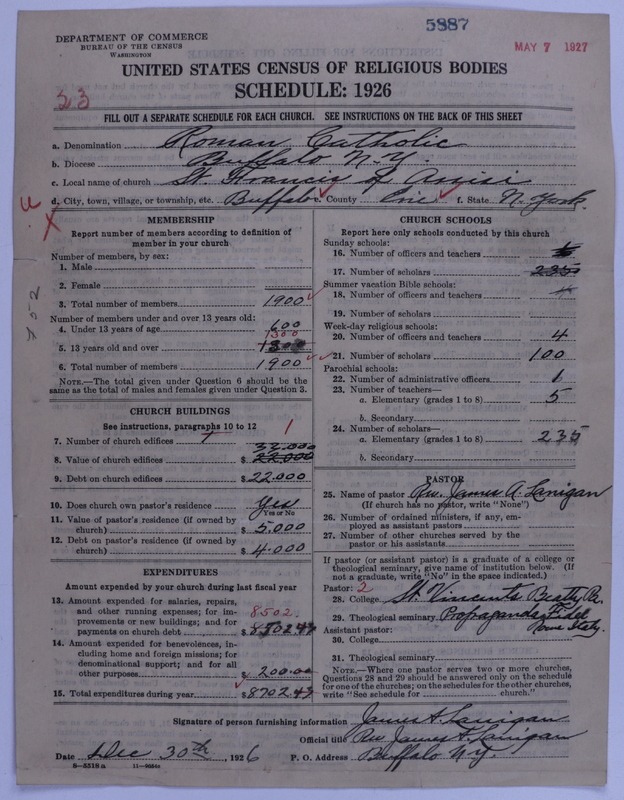 5887
DEPARTMENT OF COMMERCE
BUREAU OF THE CENSUS
WASHINGTON
MAY 7 1927
UNITED STATES CENSUS OF RELIGIOUS BODIES
SCHEDULE: 1926
23
FILL OUT A SEPARATE SCHEDULE FOR EACH CHURCH. SEE INSTRUCTIONS ON THE BACK OF THIS SHEET
a. Denomination Roman Catholic
b. Diocese Buffalo N.Y.
c. Local name of church St. Francis of Assisi
d. City, town, village, or township, etc. Buffalo e. County Erie f. State N. York.
MEMBERSHIP
Report number of members according to definition of
member in your church
Number of members, by sex:
1. Male
2. Female
3. Total number of members 1900
Number of members under and over 13 years old:
4. Under 13 years of age 600
1300
5. 13 years old and over 1300
6. Total number of members 1900
NOTE.—The total given under Question 6 should be
same as the total of males and females given under Question 3.
CHURCH BUILDINGS
See instructions, paragraphs 10 to 12
7. Number of church edifices 1
32.000
8. Value of church edifices $ 22.000
9. Debt on church edifices $ 22.000
10. Does church own pastor's residence Yes
Yes or No
11. Value of pastor's residence (if owned by
church) $ 5.000
12. Debt on pastor's residence (if owned by
church) $ 4.000
EXPENDITURES
Amount expended by your church during last fiscal year
13. Amount expended for salaries, repairs,
and other running expenses; for im-
provements or new buildings; and for
payments on church debt $ 8502.47
8502
14. Amount expended for benevolences, in-
cluding home and foreign missions; for
denominational support; and for all
other purposes $ 200.00
15. Total expenditures during year $ 8702.47
CHURCH SCHOOLS
Report here only schools conducted by this church
Sunday schools:
16. Number of officers and teachers
17. Number of scholars 235
Summer vacation Bible schools:
18. Number of officers and teachers
19. Number of scholars
Week-day religious schools:
20. Number of officers and teachers 4
21. Number of scholars 100
Parochial schools:
22. Number of administrative officers 1
23. Number of teachers—
a. Elementary (grades 1 to 8) 5
b. Secondary
24. Number of scholars—
a. Elementary (grades 1 to 8) 235
b. Secondary
PASTOR
25. Name of pastor Rev. James A. Lanigan
(If church has no pastor, write "None")
26. Number of ordained ministers, if any, em-
ployed as assistant pastors
27. Number of other churches served by the
pastor or his assistants
If pastor (or assistant pastor) is a graduate of a college or
theological seminary, give name of institution below. (If
not a graduate, write "No" in the space indicated.)
Pastor: 2
28. College St. Vincents Beatty Pa.
29. Theological seminary Propaganda Fidel
Rome Italy.
Assistant pastor:
30. College
31. Theological seminary
NOTE.—Where one pastor serves two or more churches,
Questions 28 and 29 should be answered only on the schedule
for one of the churches; on the schedules for the other churches,
write "See schedule for church."
Signature of person furnishing information James A. Lanigan
Official title Rev James A. Lanigan
Date Dec 30th, 1926 P. O. Address Buffalo N.Y.
8—5518a 11—9054